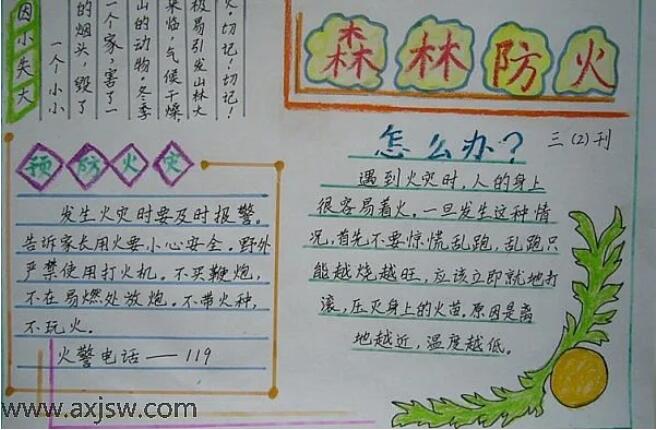 因小失大
一个小小
的烟头，毁了
一个家，害了一
山的动物！冬季
来临，气候干燥，
极易引发山林大
火切记！切记！
森林防火
三(2)刊
预防火灾
发生火灾时要及时报警。
告诉家长用火要小心安全。野外
严禁使用打火机。不买鞭炮，
不在易燃处放炮。不带火种，
不玩火。
火警电话——119
怎么办？
遇到火灾时，人的身上
很容易着火。一旦发生这种情
况，首先不要惊慌乱跑，乱跑只
能越烧越旺，应该立即就地打
滚，压灭身上的火苗。原因是离
地越近，温度越低。
www.axjsw.com